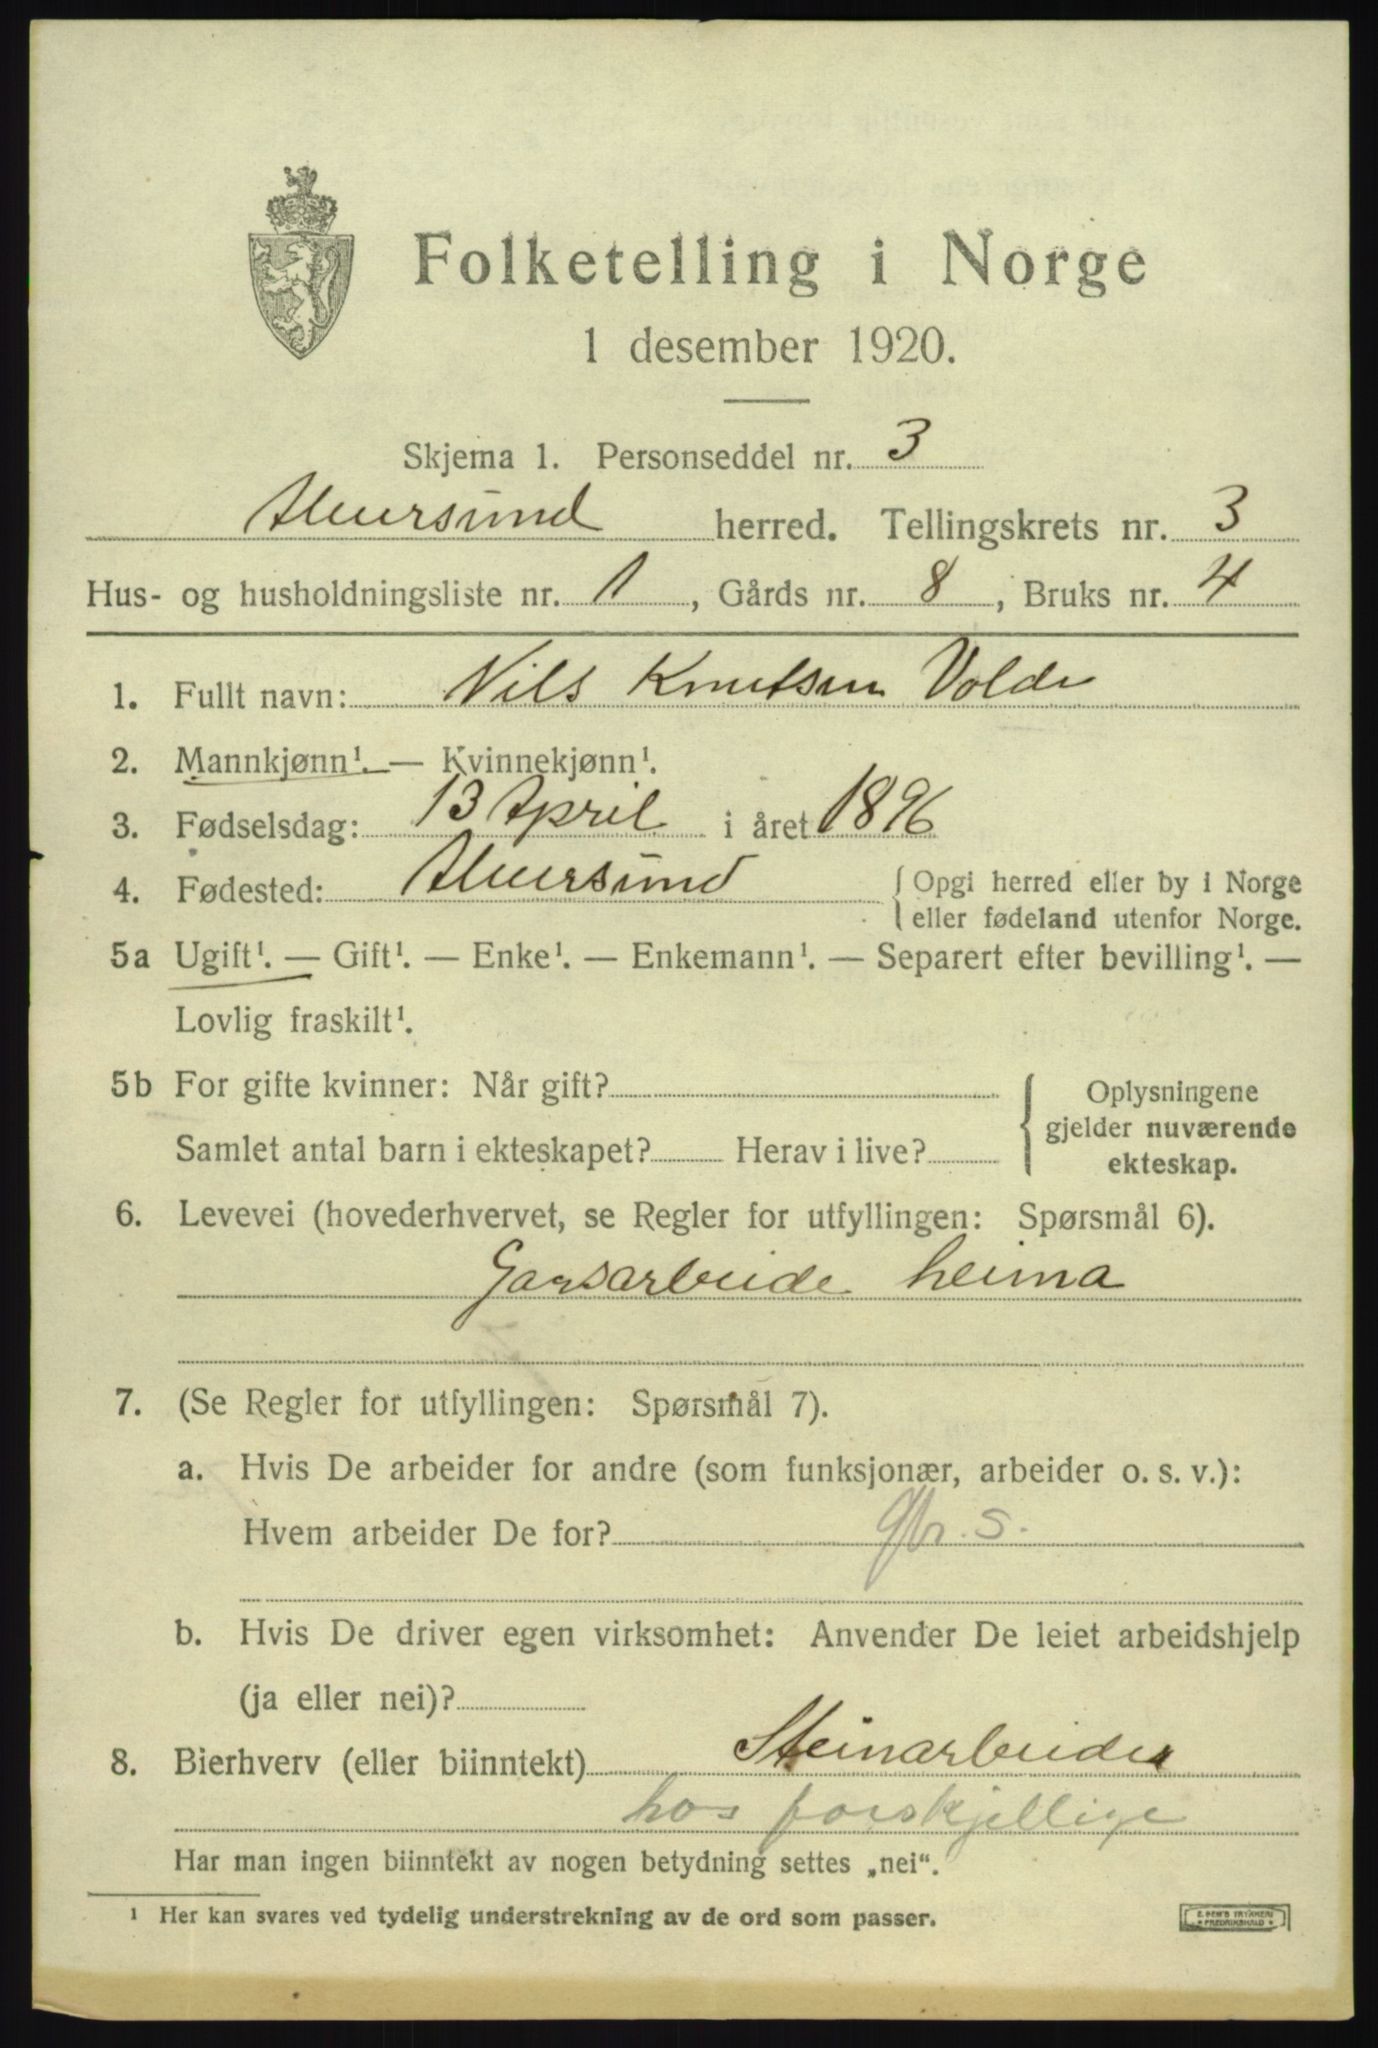 Folketelling i Norge
1 desember 1920.
Skjema 1. Personseddel nr. 3
Alversund herred. Tellingskrets nr. 3
Hus- og husholdningsliste nr. 1, Gårds nr. 8, Bruks nr. 4
1. Fullt navn: Nils Knutsen Volde
2. Mannkjønn¹. — Kvinnekjønn¹.
3. Fødselsdag: 13 April i året 1896
4. Fødested: Alversund { Opgi herred eller by i Norge
eller fødeland utenfor Norge.
5a Ugift¹. — Gift¹. — Enke¹. — Enkemann¹. — Separert efter bevilling¹. —
Lovlig fraskilt¹.
5b For gifte kvinner: Når gift?
Samlet antal barn i ekteskapet? Herav i live?
Oplysningene
gjelder nuværende
ekteskap.
6. Levevei (hovederhvervet, se Regler for utfyllingen: Spørsmål 6).
Garsarbeide heima
7. (Se Regler for utfyllingen: Spørsmål 7).
a. Hvis De arbeider for andre (som funksjonær, arbeider o. s. v.):
Hvem arbeider De for? s.
b. Hvis De driver egen virksomhet: Anvender De leiet arbeidshjelp
(ja eller nei)?
8. Bierhverv (eller biinntekt) Steinarbeider
hos forskjellige
Har man ingen biinntekt av nogen betydning settes „nei“.
¹ Her kan svares ved tydelig understrekning av de ord som passer.
E. SEM'S TRYKKERI
FREDRIKSHALD